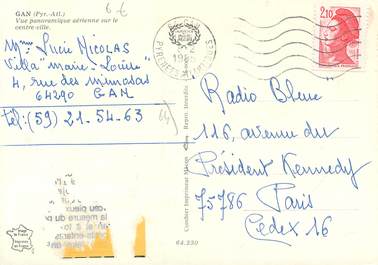 GAN (Pyr.-Atl.)
Vue panoramique aérienne sur le
centre-ville.
6 €
Mme Lucie NICOLAS
Villa "Marie-Louise"
4, rue des Mimosas
64290 GAN
tél:(59) 21-54-63
64
2,10
Radio Bleue
116, avenue du
Président Kennedy
75786 Paris
Cedex 16
Combier Imprimeur Mâcon
Reprod. Interdite
64.230